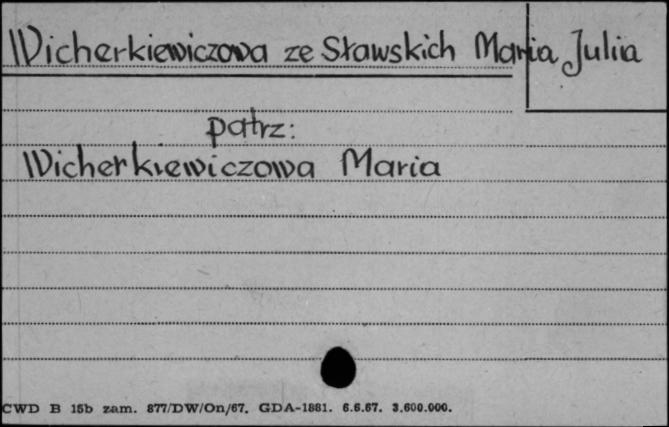 Wicherkiewiczowa ze Sławskich Maria Julia
patrz:
Wicherkiewiczowa Maria
CWD B 15b zam. 877/DW/On/67. GDA-1881. 6.6.67. 3.600.000.